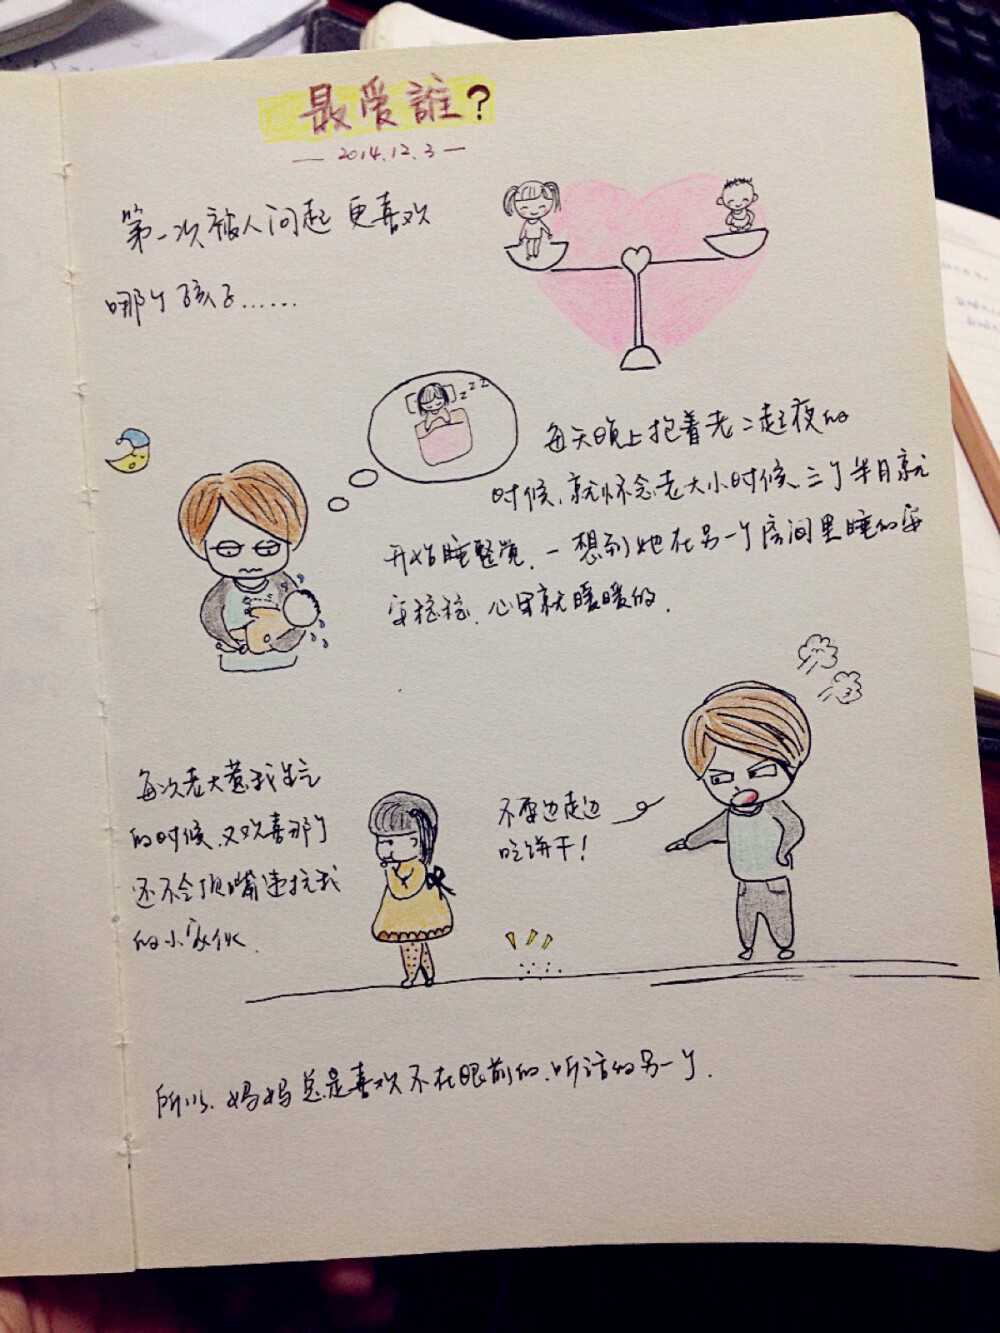 最爱誰?
2014.12.3
第一次被人问起更喜欢
哪个孩子……
zzz
每天晚上抱着老二起夜的
时候,就怀念老大小时候,三个半月就
开始睡整觉,一想到她在另一个房间里睡的安
安稳稳,心里就暖暖的.
每次老大惹我生气
的时候,又欢喜那个
还不会顶嘴违抗我
的小家伙.
不要边走边
吃饼干!
所以,妈妈总是喜欢不在眼前的,听话的另一个.